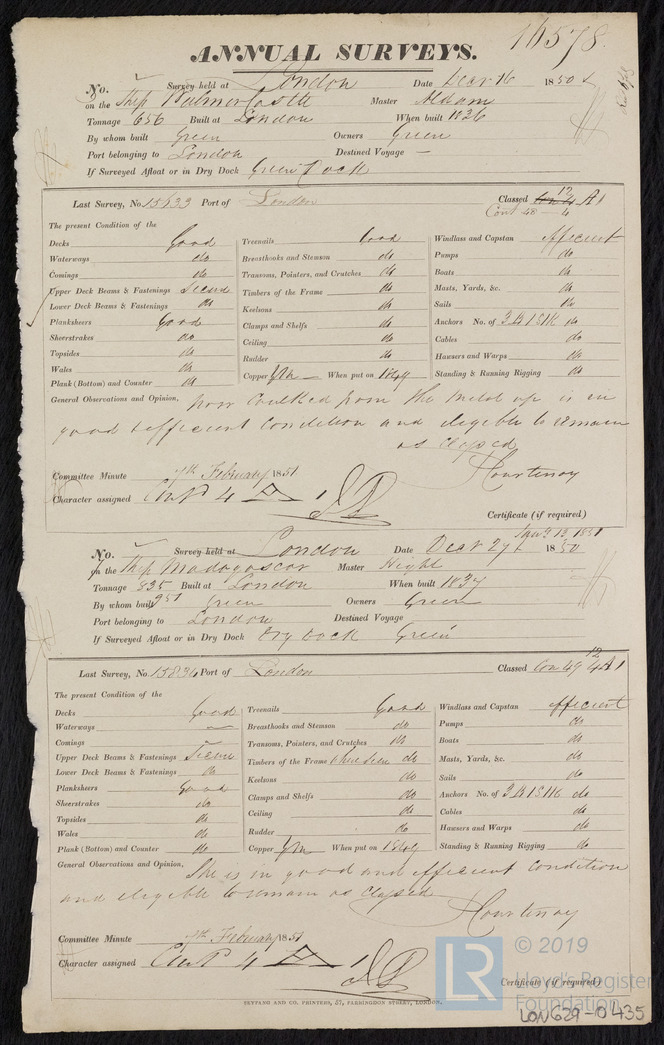 16578
ANNUAL SURVEYS.
No. Survey held at London Date Decr 16 1850
on the Ship Walmer Castle Master
Tonnage 656 Built at London When built 1836
By whom built Green Owners Green
Port belonging to London Destined Voyage —
If Surveyed Afloat or in Dry Dock Green Dock
Last Survey, No. 15633 Port of London Classed 12 A1
Cont 48 4
The present Condition of the
Decks Good
Waterways do
Comings do
Upper Deck Beams & Fastenings Secure
Lower Deck Beams & Fastenings do
Planksheers Good
Sheerstrakes do
Topsides do
Wales do
Plank (Bottom) and Counter do
Treenails Good
Breasthooks and Stemson do
Transoms, Pointers, and Crutches do
Timbers of the Frame do
Keelsons do
Clamps and Shelfs do
Ceiling do
Rudder do
Copper YM — When put on 1849
Windlass and Capstan efficient
Pumps do
Boats do
Masts, Yards, &c. do
Sails do
Anchors No. of 3B 1S 1K do
Cables do
Hawsers and Warps do
Standing & Running Rigging do
General Observations and Opinion, now Caulked from the metal up is in
good & efficient Condition and eligible to remain
as Classed
Courtenay
Committee Minute 7th February 1851
Character assigned Cont 4 A 1
Certificate (if required)
Jany 13 1851
No. Survey held at London Date Decr 27 1850
on the Ship Madagascar Master Hight
Tonnage 835 Built at London When built 1837
951
By whom built Green Owners Green
Port belonging to London Destined Voyage
If Surveyed Afloat or in Dry Dock Dry Dock Green
Last Survey, No. 15836 Port of London Classed Con 49 12 4 A1
The present Condition of the
Decks Good
Waterways —
Comings —
Upper Deck Beams & Fastenings Secure
Lower Deck Beams & Fastenings do
Planksheers Good
Sheerstrakes do
Topsides do
Wales do
Plank (Bottom) and Counter do
Treenails Good
Breasthooks and Stemson do
Transoms, Pointers, and Crutches do
Timbers of the Frame when seen do
Keelsons do
Clamps and Shelfs do
Ceiling do
Rudder do
Copper YM When put on 1849
Windlass and Capstan efficient
Pumps do
Boats do
Masts, Yards, &c. do
Sails do
Anchors No. of 3B 1S 1K do
Cables do
Hawsers and Warps do
Standing & Running Rigging do
General Observations and Opinion, She is in good and efficient condition
and eligible to remain as Classed
Courtenay
Committee Minute 7th February 1851
Character assigned Cont 4 A 1
Certificate (if required)
TEYPANG AND CO. PRINTERS, 57, FARRINGDON STREET, LONDON.
LR © 2019
Lloyd's Register
Foundation
LON629-0435